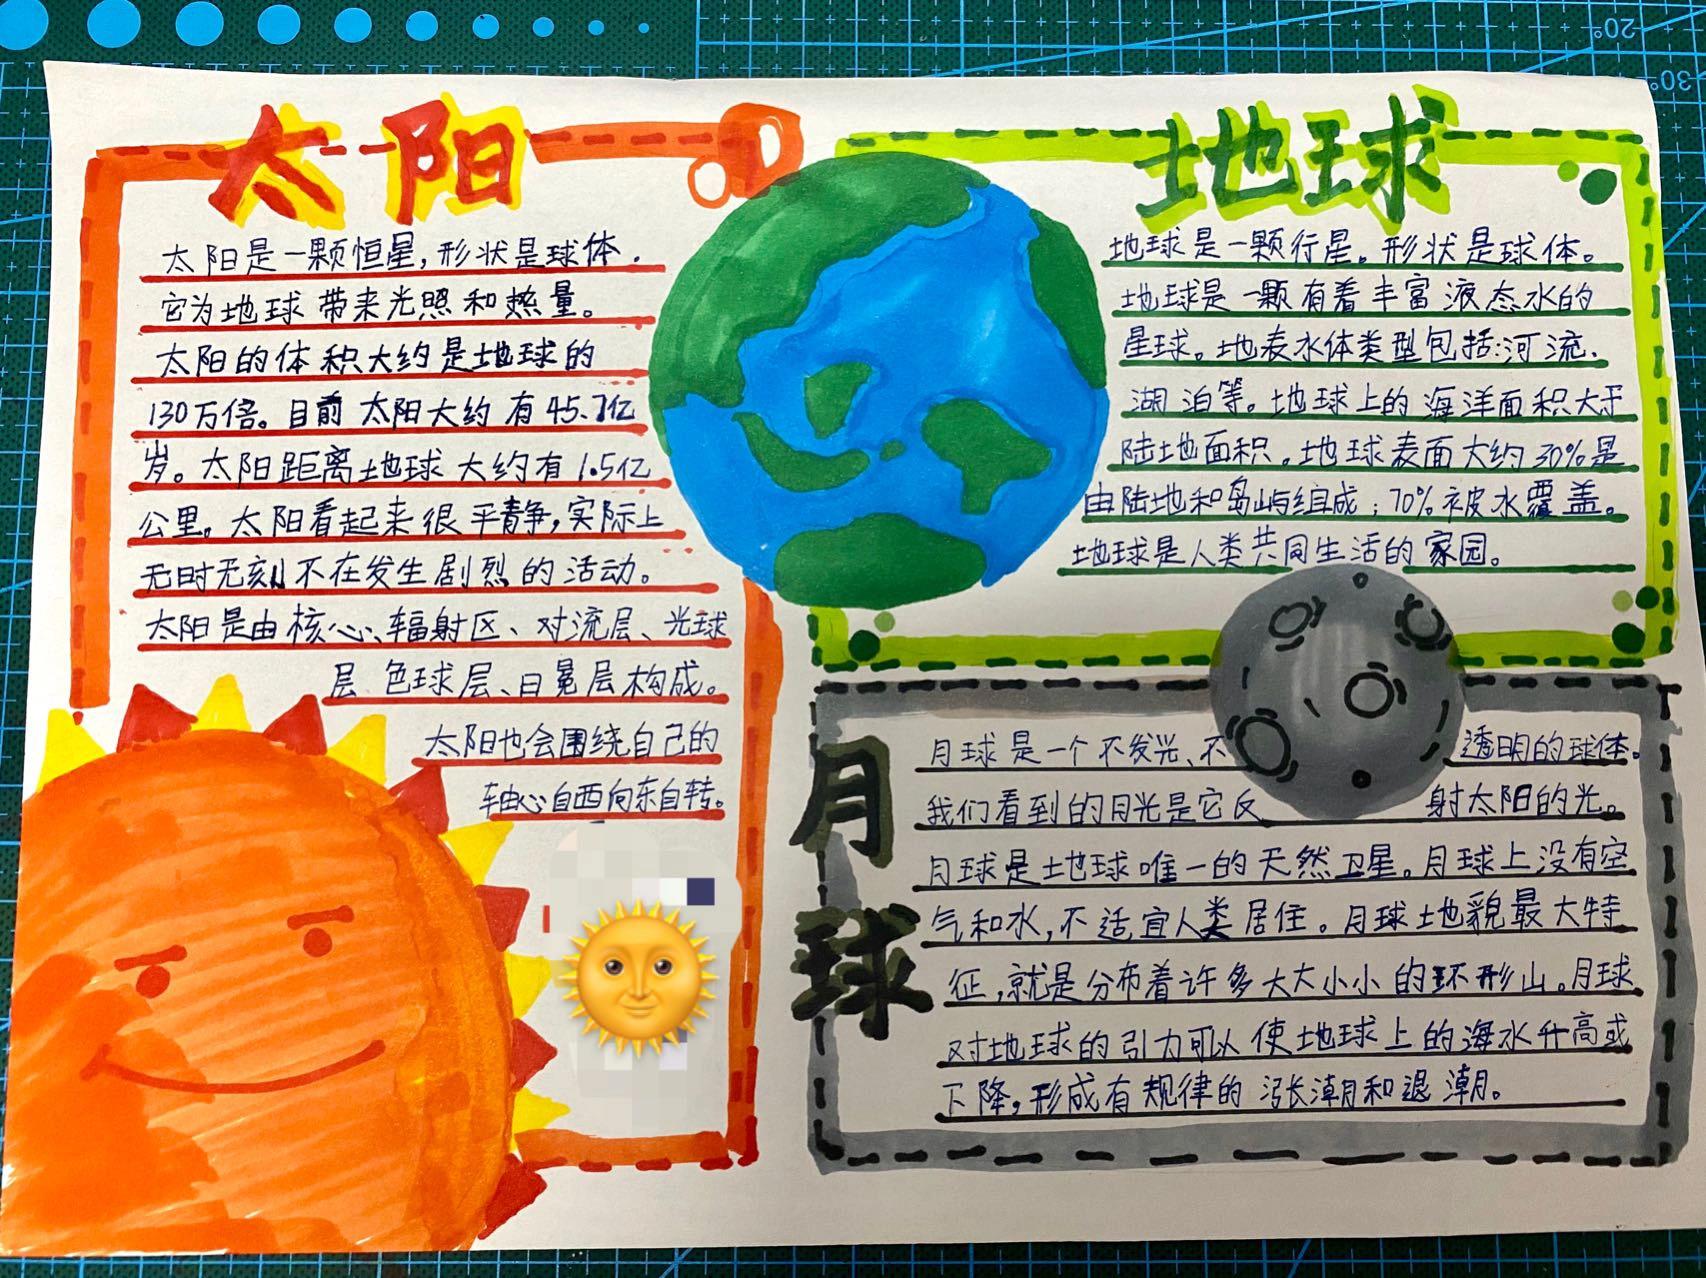 太阳
太阳是一颗恒星，形状是球体．
它为地球带来光照和热量。
太阳的体积大约是地球的
130万倍。目前太阳大约有45.7亿
岁。太阳距离地球大约有1.5亿
公里。太阳看起来很平静，实际上
无时无刻不在发生剧烈的活动。
太阳是由核心、辐射区、对流层、光球
层 色球层、日冕层构成。
太阳也会围绕自己的
轴心自西向东自转。
地球
地球是一颗行星。形状是球体。
地球是一颗有着丰富液态水的
星球。地表水体类型包括：河流．
湖泊等。地球上的海洋面积大于
陆地面积。地球表面大约30%是
由陆地和岛屿组成；70%被水覆盖。
地球是人类共同生活的家园。
月球
月球是一个不发光、不透明的球体。
我们看到的月光是它反射太阳的光。
月球是地球唯一的天然卫星。月球上没有空
气和水，不适宜人类居住。月球地貌最大特
征，就是分布着许多大大小小的环形山。月球
对地球的引力可以使地球上的海水升高或
下降，形成有规律的涨潮和退潮。
20°
30°